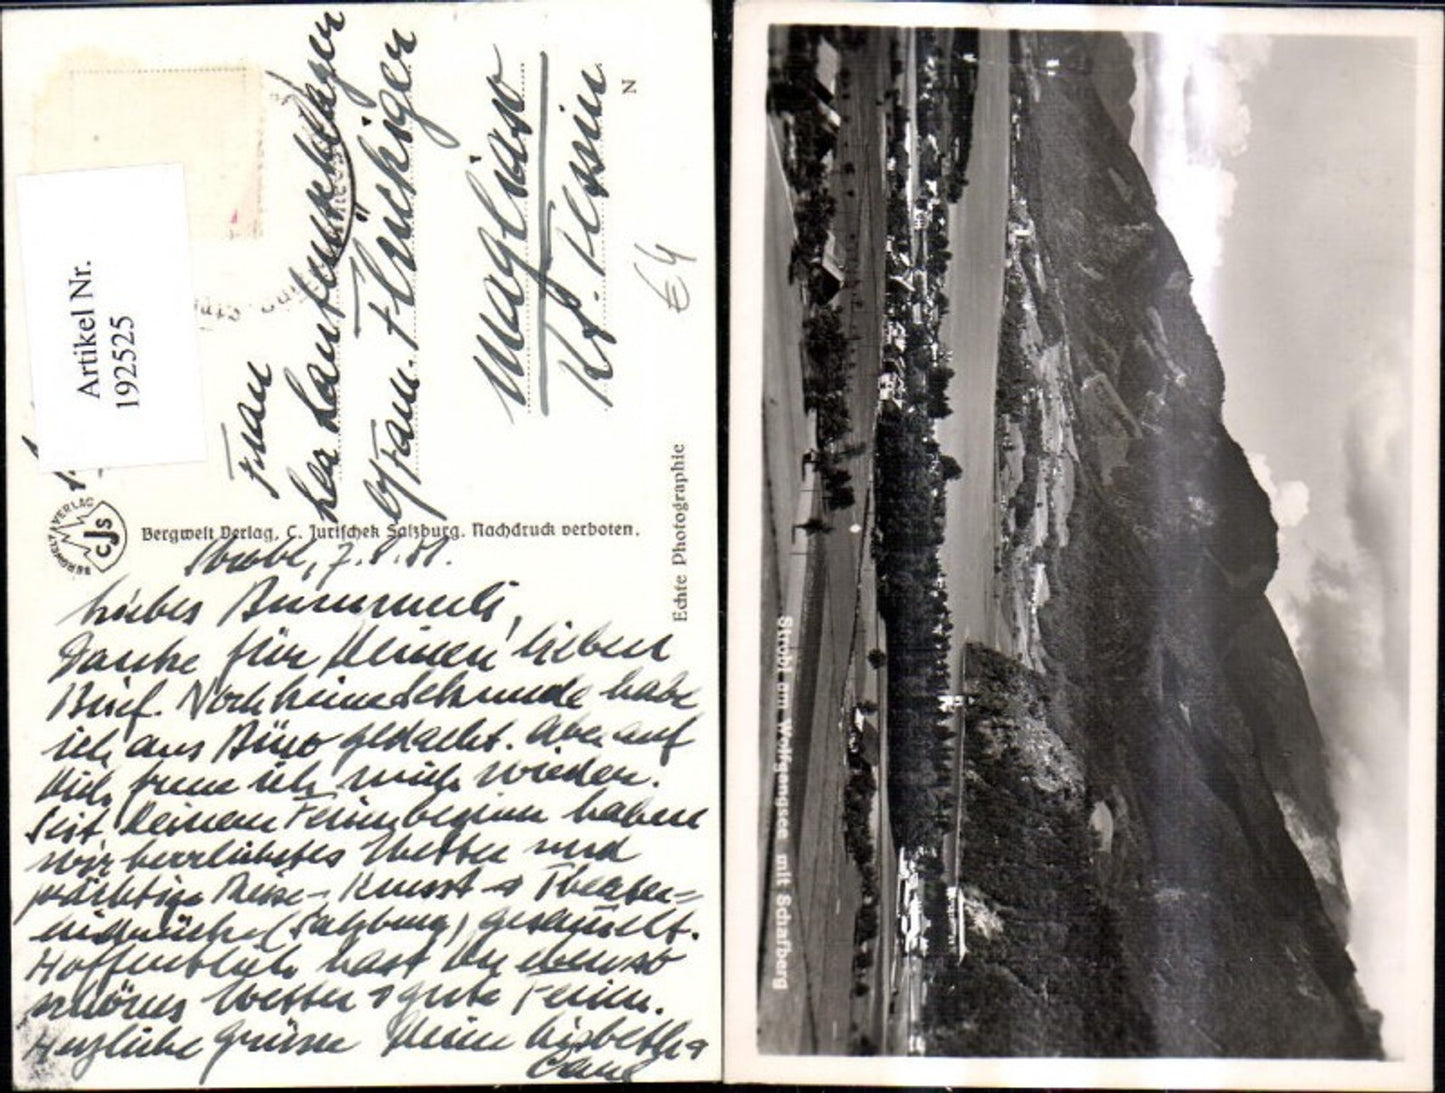 Artikel Nr.
192525
Frau
Lea Laufenschlager
p/Fam. Flückiger
Magliaso
Kt. Tessin
N
€4
BERGWELT VERLAG
CJS
Bergwelt Verlag, C. Jurischek Salzburg. Nachdruck verboten.
Echte Photographie
Strobl, 7.8.51.
Liebes
Danke für Deinen lieben
Brief. Noch keine Sekunde habe
ich ans Büro gedacht. Aber auf
Dich freue ich mich wieder.
Seit Deinem Ferienbeginn haben
wir herrlichstes Wetter und
prächtige Reise- Kunst & Theater=
eindrücke (Salzburg) gesammelt.
Hoffentlich hast Du ebenso
schönes Wetter & gute Ferien.
Herzliche Grüsse Deine Lisbeth &
Strobl am Wolfgangsee mit Schafberg